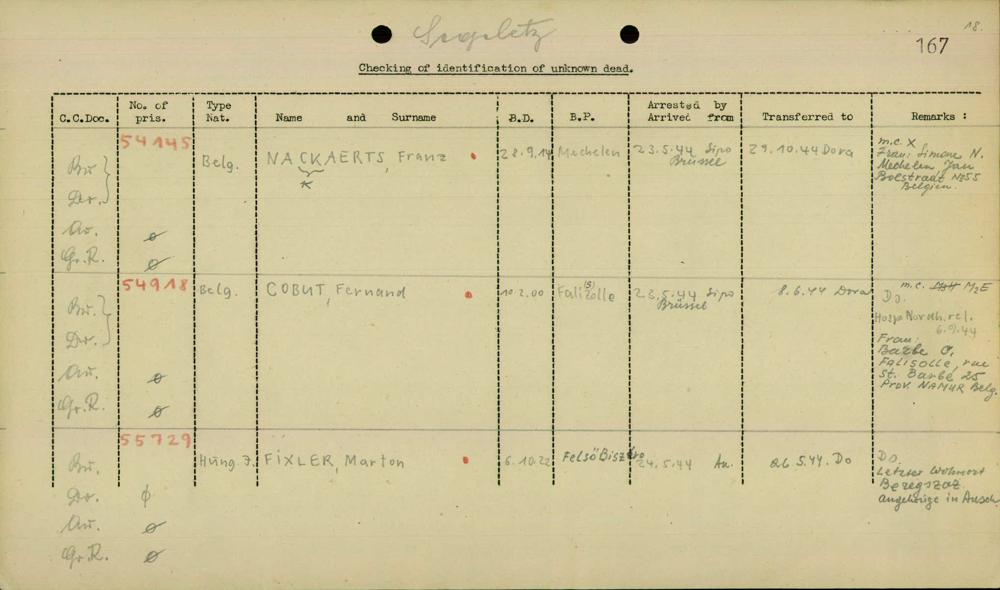 18.
167
Checking of identification of unknown dead.
C.C.Doc. No. of pris. Type Nat. Name and Surname B.D. B.P. Arrested by Arrived from Transferred to Remarks :
54145
Bu. Belg. NACKAERTS, Franz 28.9.14 Mechelen 23.5.44 Sipo Brüssel 29.10.44 Dora
K
m.c. X
Frau: Simone N.
Mechelen, Jan
Bolstradt No 55
Belgien.
Do.
Au. ø
Gr.R. ø
54918
Bu. Belg. COBUT, Fernand 10.2.00 Falizolle 23.5.44 Sipo Brüssel 8.6.44 Dora
(s)
m.c. M2E
Do.
Hosp. Nordh. rel.
6.9.44
Frau:
Barbe C,
Falisolle, rue
St. Barbe 25
Prov. NAMUR Belg.
Do.
Au. ø
Gr.R. ø
55729
Bu. Hung J. FIXLER, Marton 6.10.22 Felsö 24.5.44 Au. 26.5.44. Do
Do.
Letzter Wohnort
Beregszaz
angehörige in Ausch.
Do. ϕ
Au. ø
Gr.R. ø